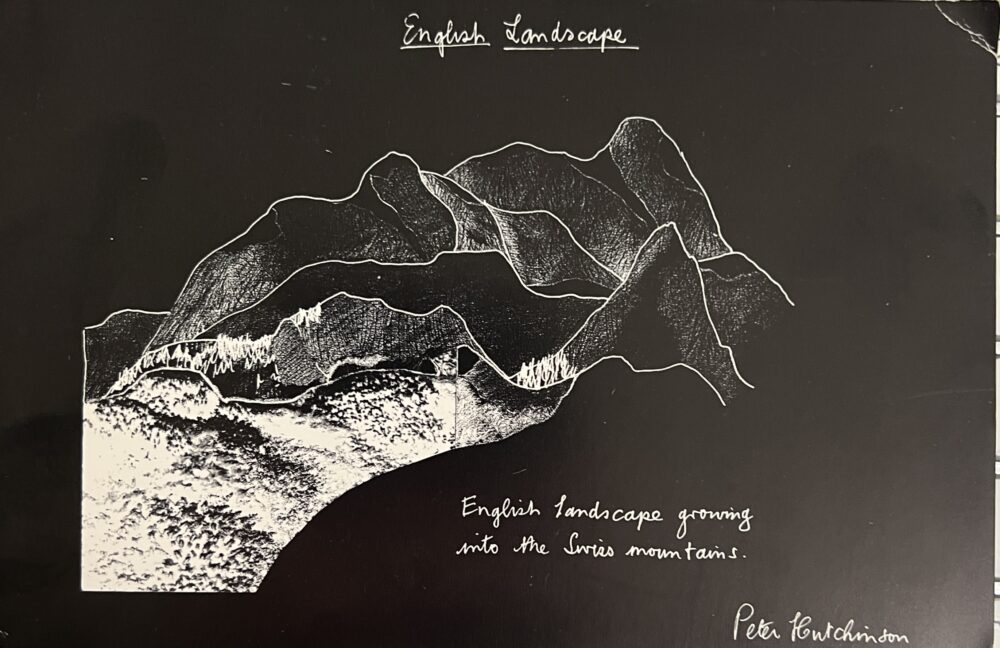 English Landscape
English Landscape growing
into the Swiss mountains.
Peter Hutchinson